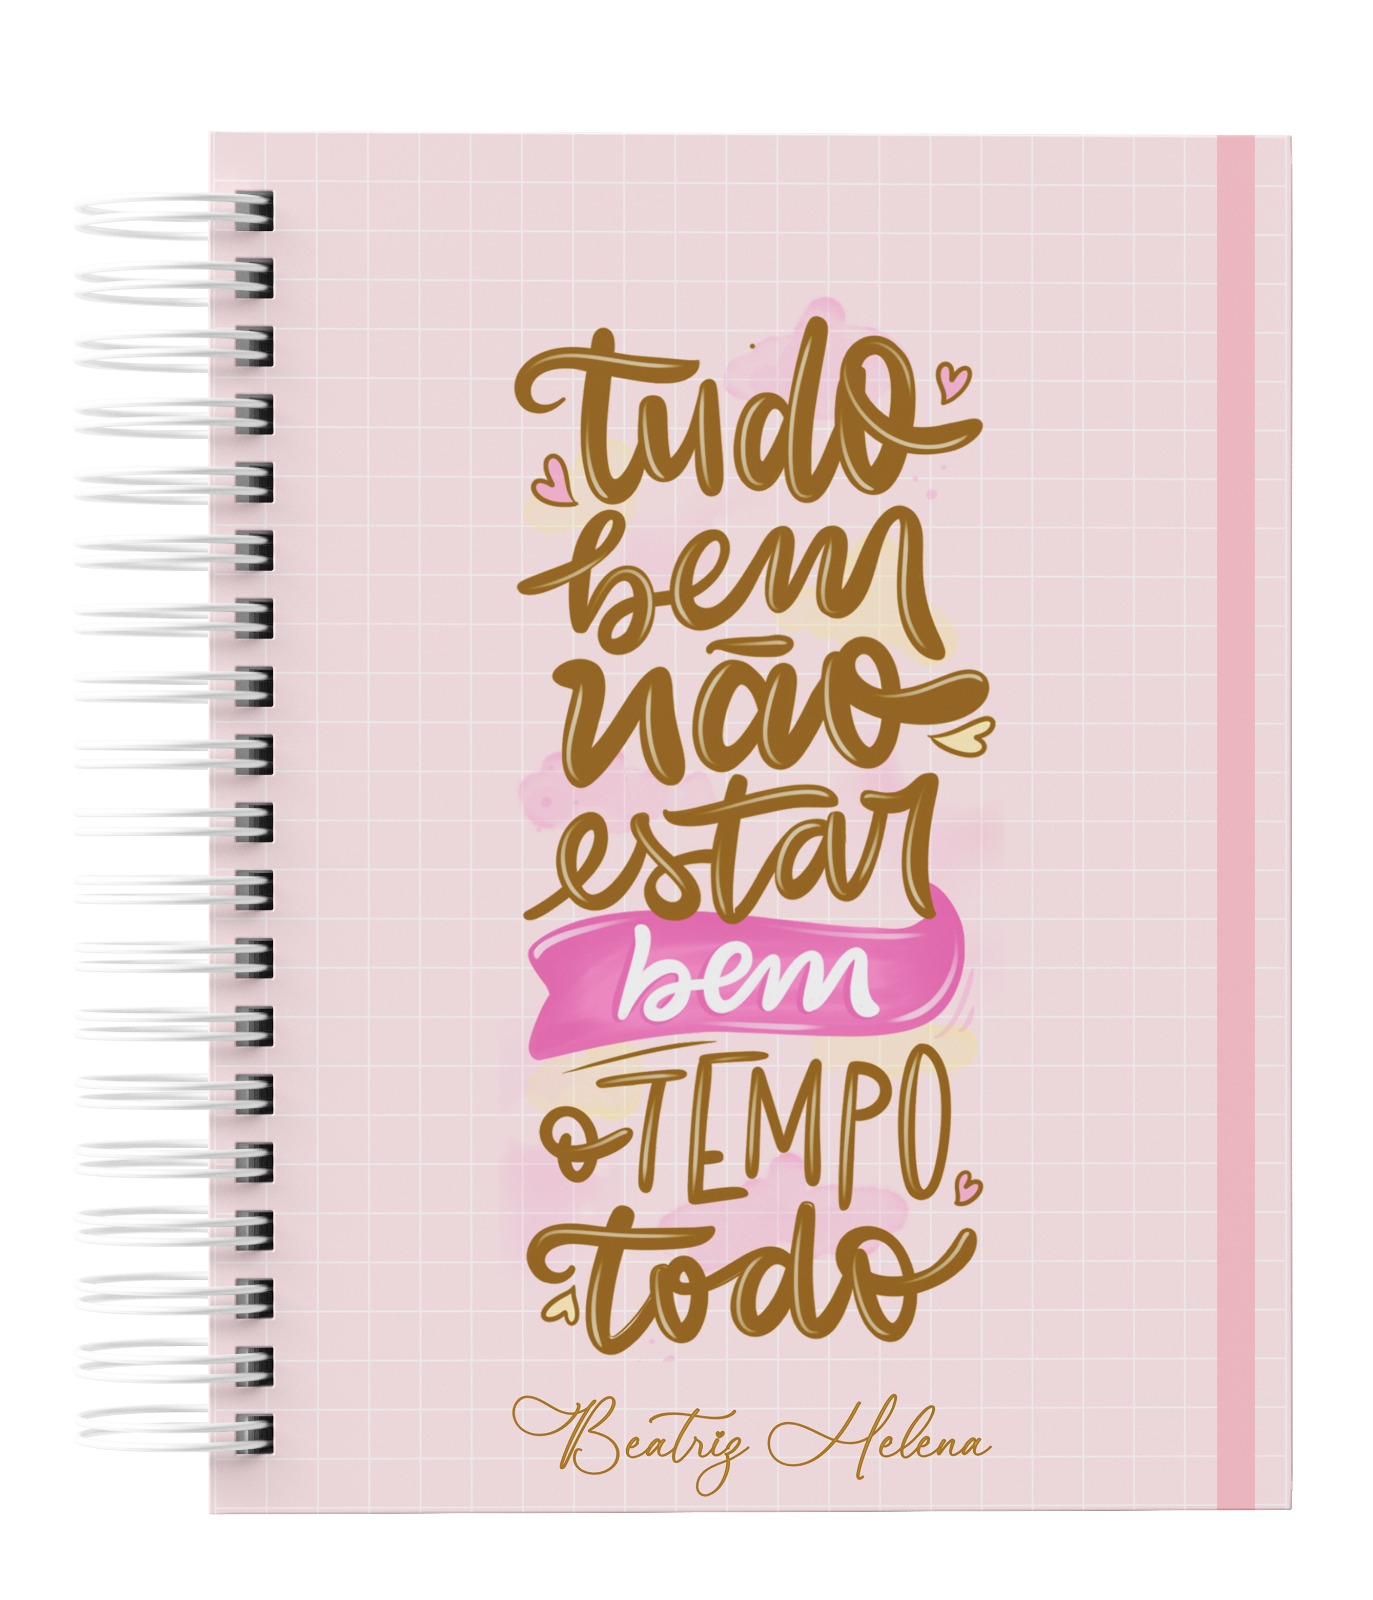 tudo
bem
não
estar
bem
o TEMPO
todo
Beatriz Helena